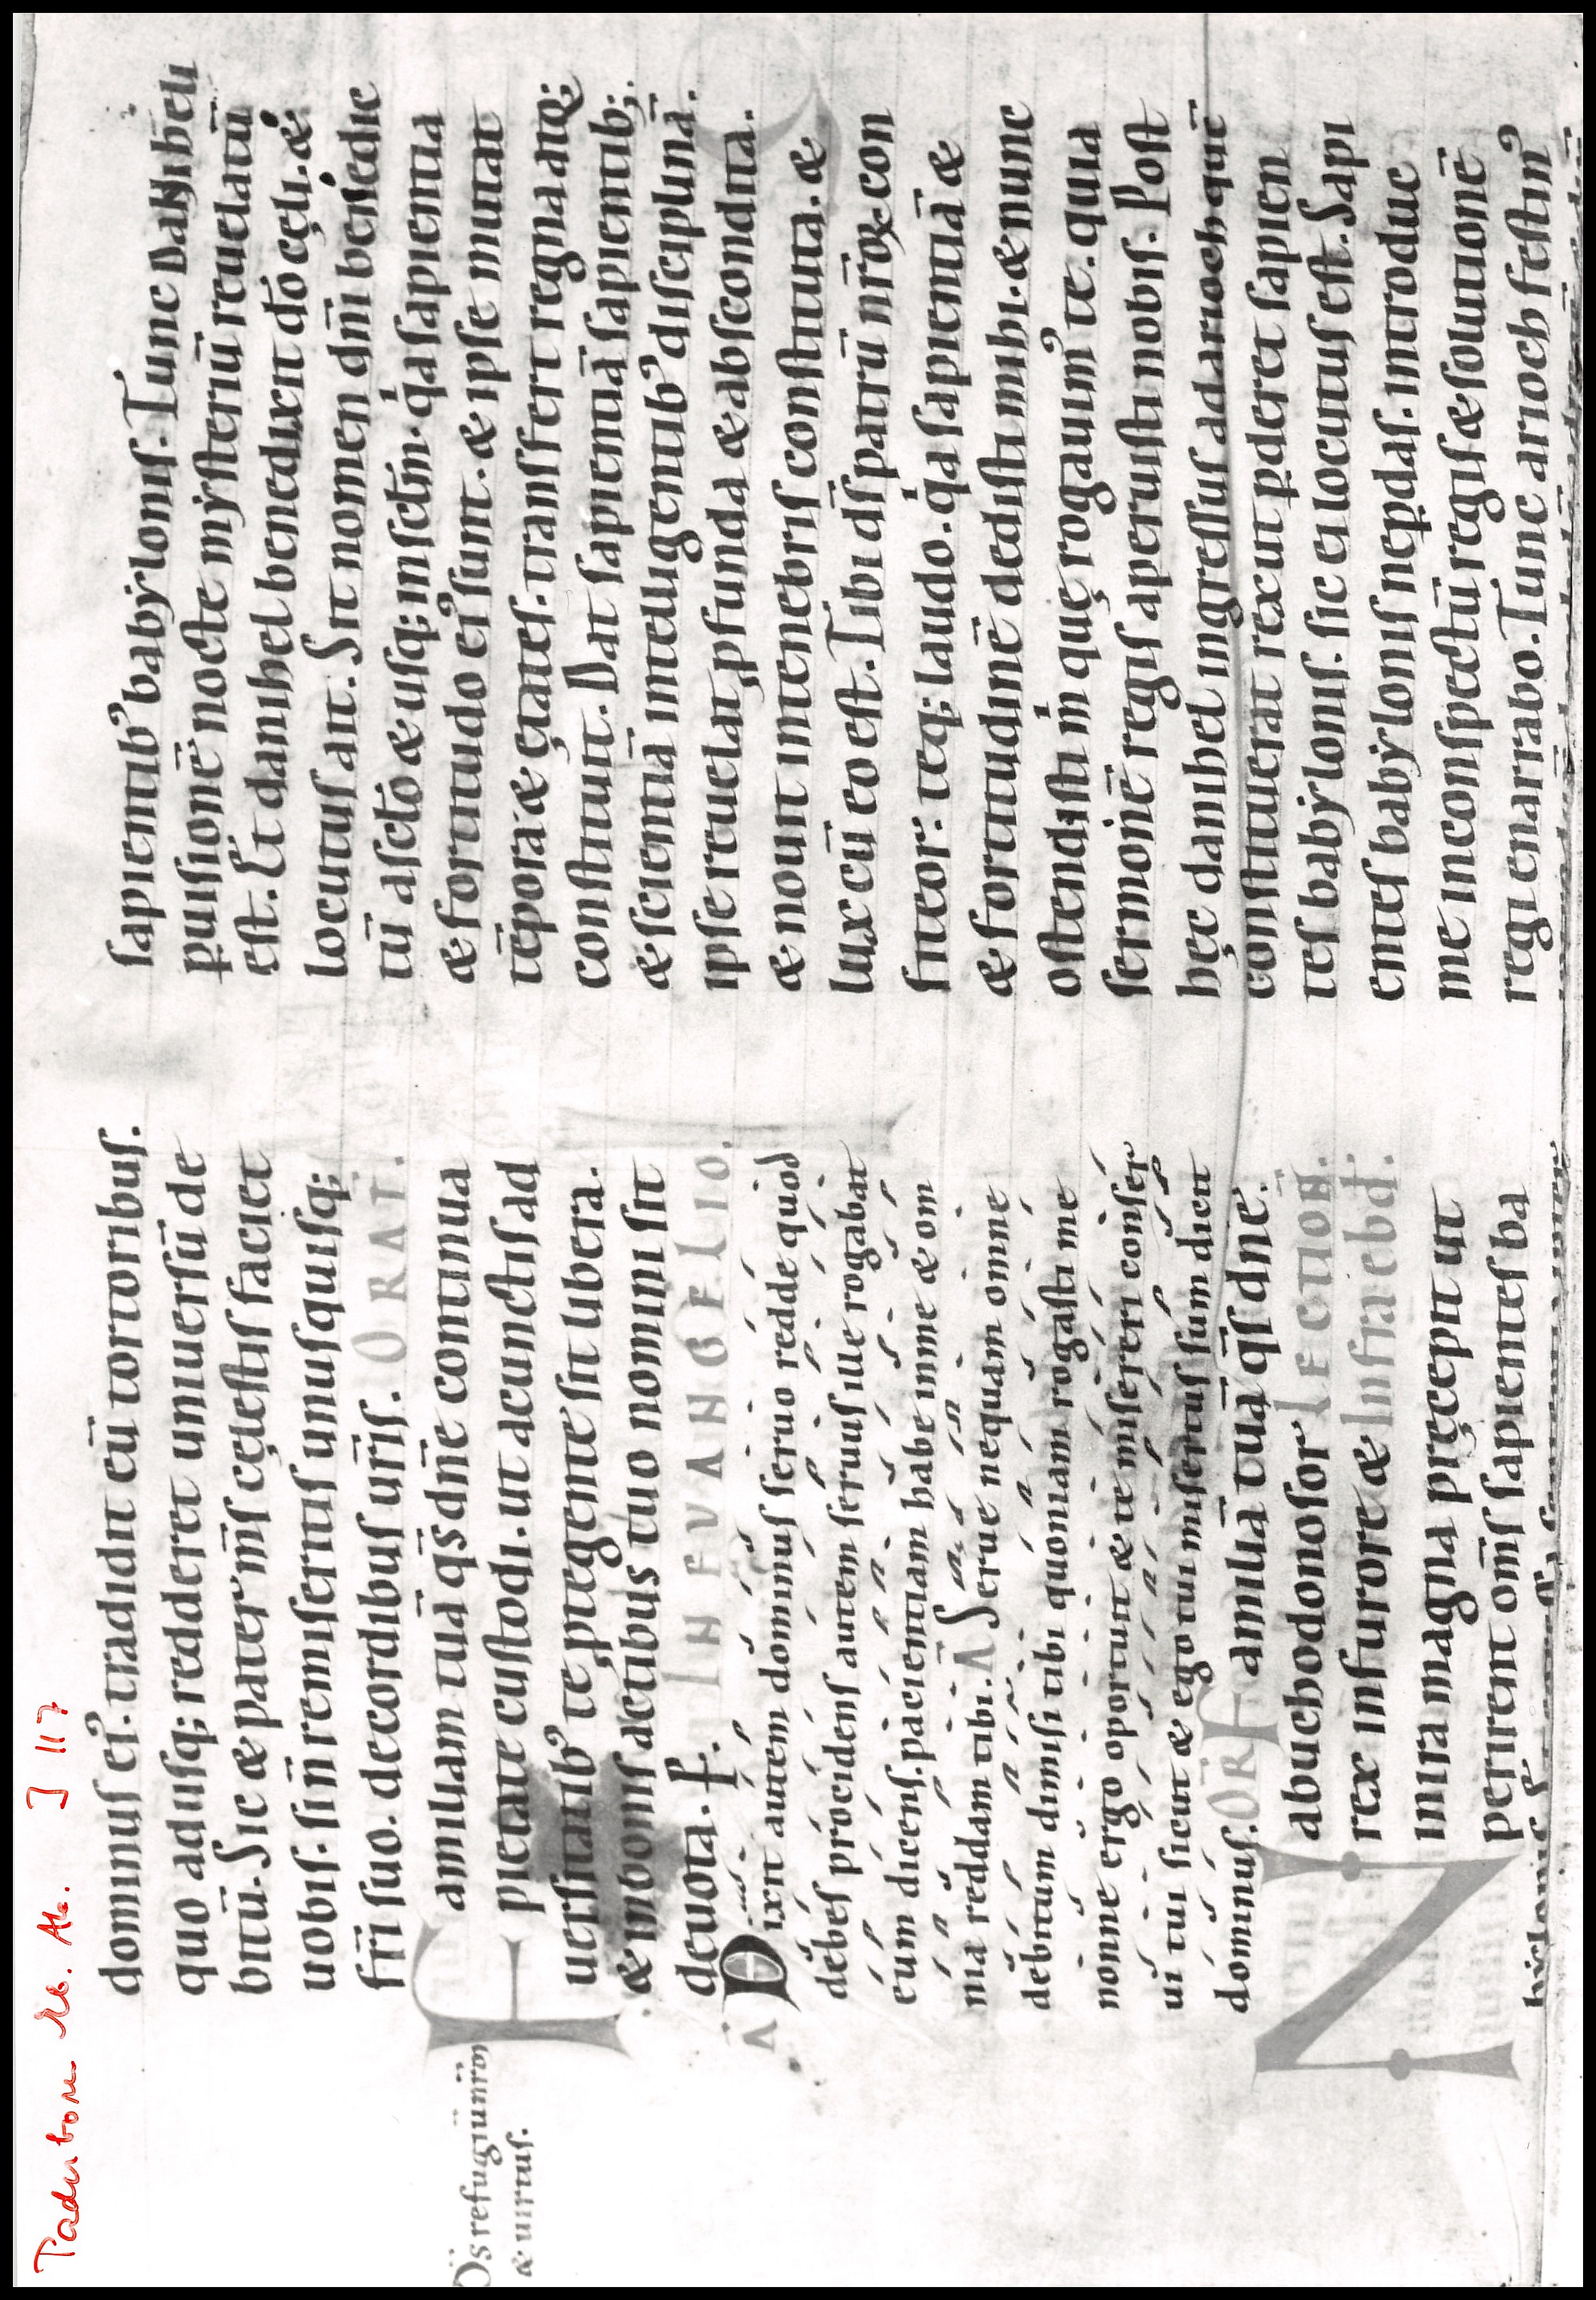 Paderborn
J 117
domnus ei᾽. tradidit cū tortoribus.
quo adusq; redderet uniuersū de
bitū. Sic & pater m̄s cęlestis faciet
uobis. si n̄ remiseritis unusquisq;
fr̄i suo. de cordibus ur̄is. ORAT.
Ds̄ refugiū nr̄m
& uirtus.
Familiam tuā qs̄ dn̄e continua
pietate custodi. ut a cunctis ad
uersitatib᾽ te ꝓtegente sit libera.
& in bonis actibus tuo nomini sit
deuota. ꝑ. IN EVANGELIO.
A Dixit autem dominus seruo redde quod
debes procidens autem seruus ille rogabat
eum dicens. pacientiam habe in me & om
nia reddam tibi. A Serue nequam omne
debitum dimisi tibi quoniam rogasti me
nonne ergo oportuit & te misereri conser
ui tui sicut & ego tui misertus sum dicit
dominus. OR̄ Familiā tuā qs̄ dn̄e.
Nabuchodonosor LECTION̄.
rex in furore &
in ira magna pręcepit ut
perirent om̄s sapientes ba
sapientib᾽ babẏlonis. Tunc DANIheli
puisionē nocte mẏsteriū reuelatū
est. Et danihel benedixit dō cęli. &
locutus ait. Sit nomen dn̄i benedic
tū a sc̄lo & usq; in sc̄lm. qͥa sapientia
& fortitudo ei᾽ sunt. & ipse mutat
tēpora & ętates. transfert regna atq;
constituit. Dat sapientiā sapientib;.
& scientiā intelligentib᾽ disciplinā.
ipse reuelat ꝓfunda & abscondita.
& nouit in tenebris constituta. &
lux cū eo est. Tibi ds̄ patrū nr̄oꝝ con
fiteor. teq; laudo. qͥa sapientiā &
& fortitudinē dedisti mihi. & nunc
ostendisti m̍ quę rogauim᾽ te. quia
sermonē regis aperuisti nobis. Post
hęc danihel ingressus ad arioch quē
constituerat rex ut ꝑderet sapien
tes babẏlonis. sic ei locutus est. Sapi
entes babẏlonis ne ꝑdas. introduc
me in conspectū regis & solutionē
regi enarrabo. Tunc arioch festin᾽